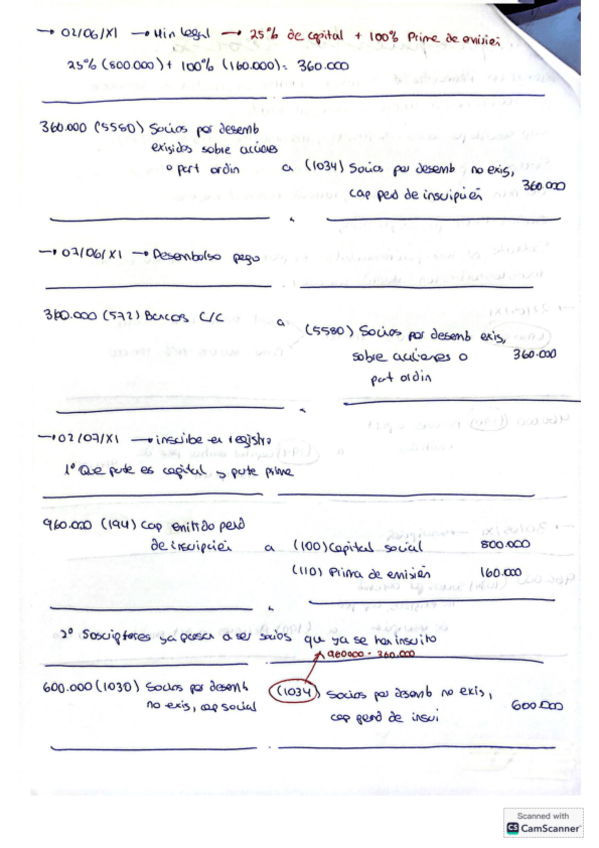 → 02/06/X1 → Min Legal → 25% de capital + 100% Prima de emisión
25% (800.000) + 100% (160.000) = 360.000
360.000 (5580) Socios por desemb
exigidos sobre acciones
o part ordin a (1034) Socios por desemb no exis,
cap pend de inscripción 360.000
→ 07/06/X1 → Desembolso pago
360.000 (572) Bancos C/C a (5580) Socios por desemb exis,
sobre acciones o 360.000
part ordin
→ 02/07/X1 → inscribe en registro
1º Que parte es capital y parte prima
960.000 (194) cap emitido pend
de inscripción a (100) Capital social 800.000
(110) Prima de emisión 160.000
2º Soscriptores ya pasan a ser socios que ya se han inscrito
960000 - 360.000
600.000 (1030) Socios por desemb (1034) Socios por desemb no exis,
no exis, cap social cap pend de inscri 600.000
Scanned with
CS CamScanner